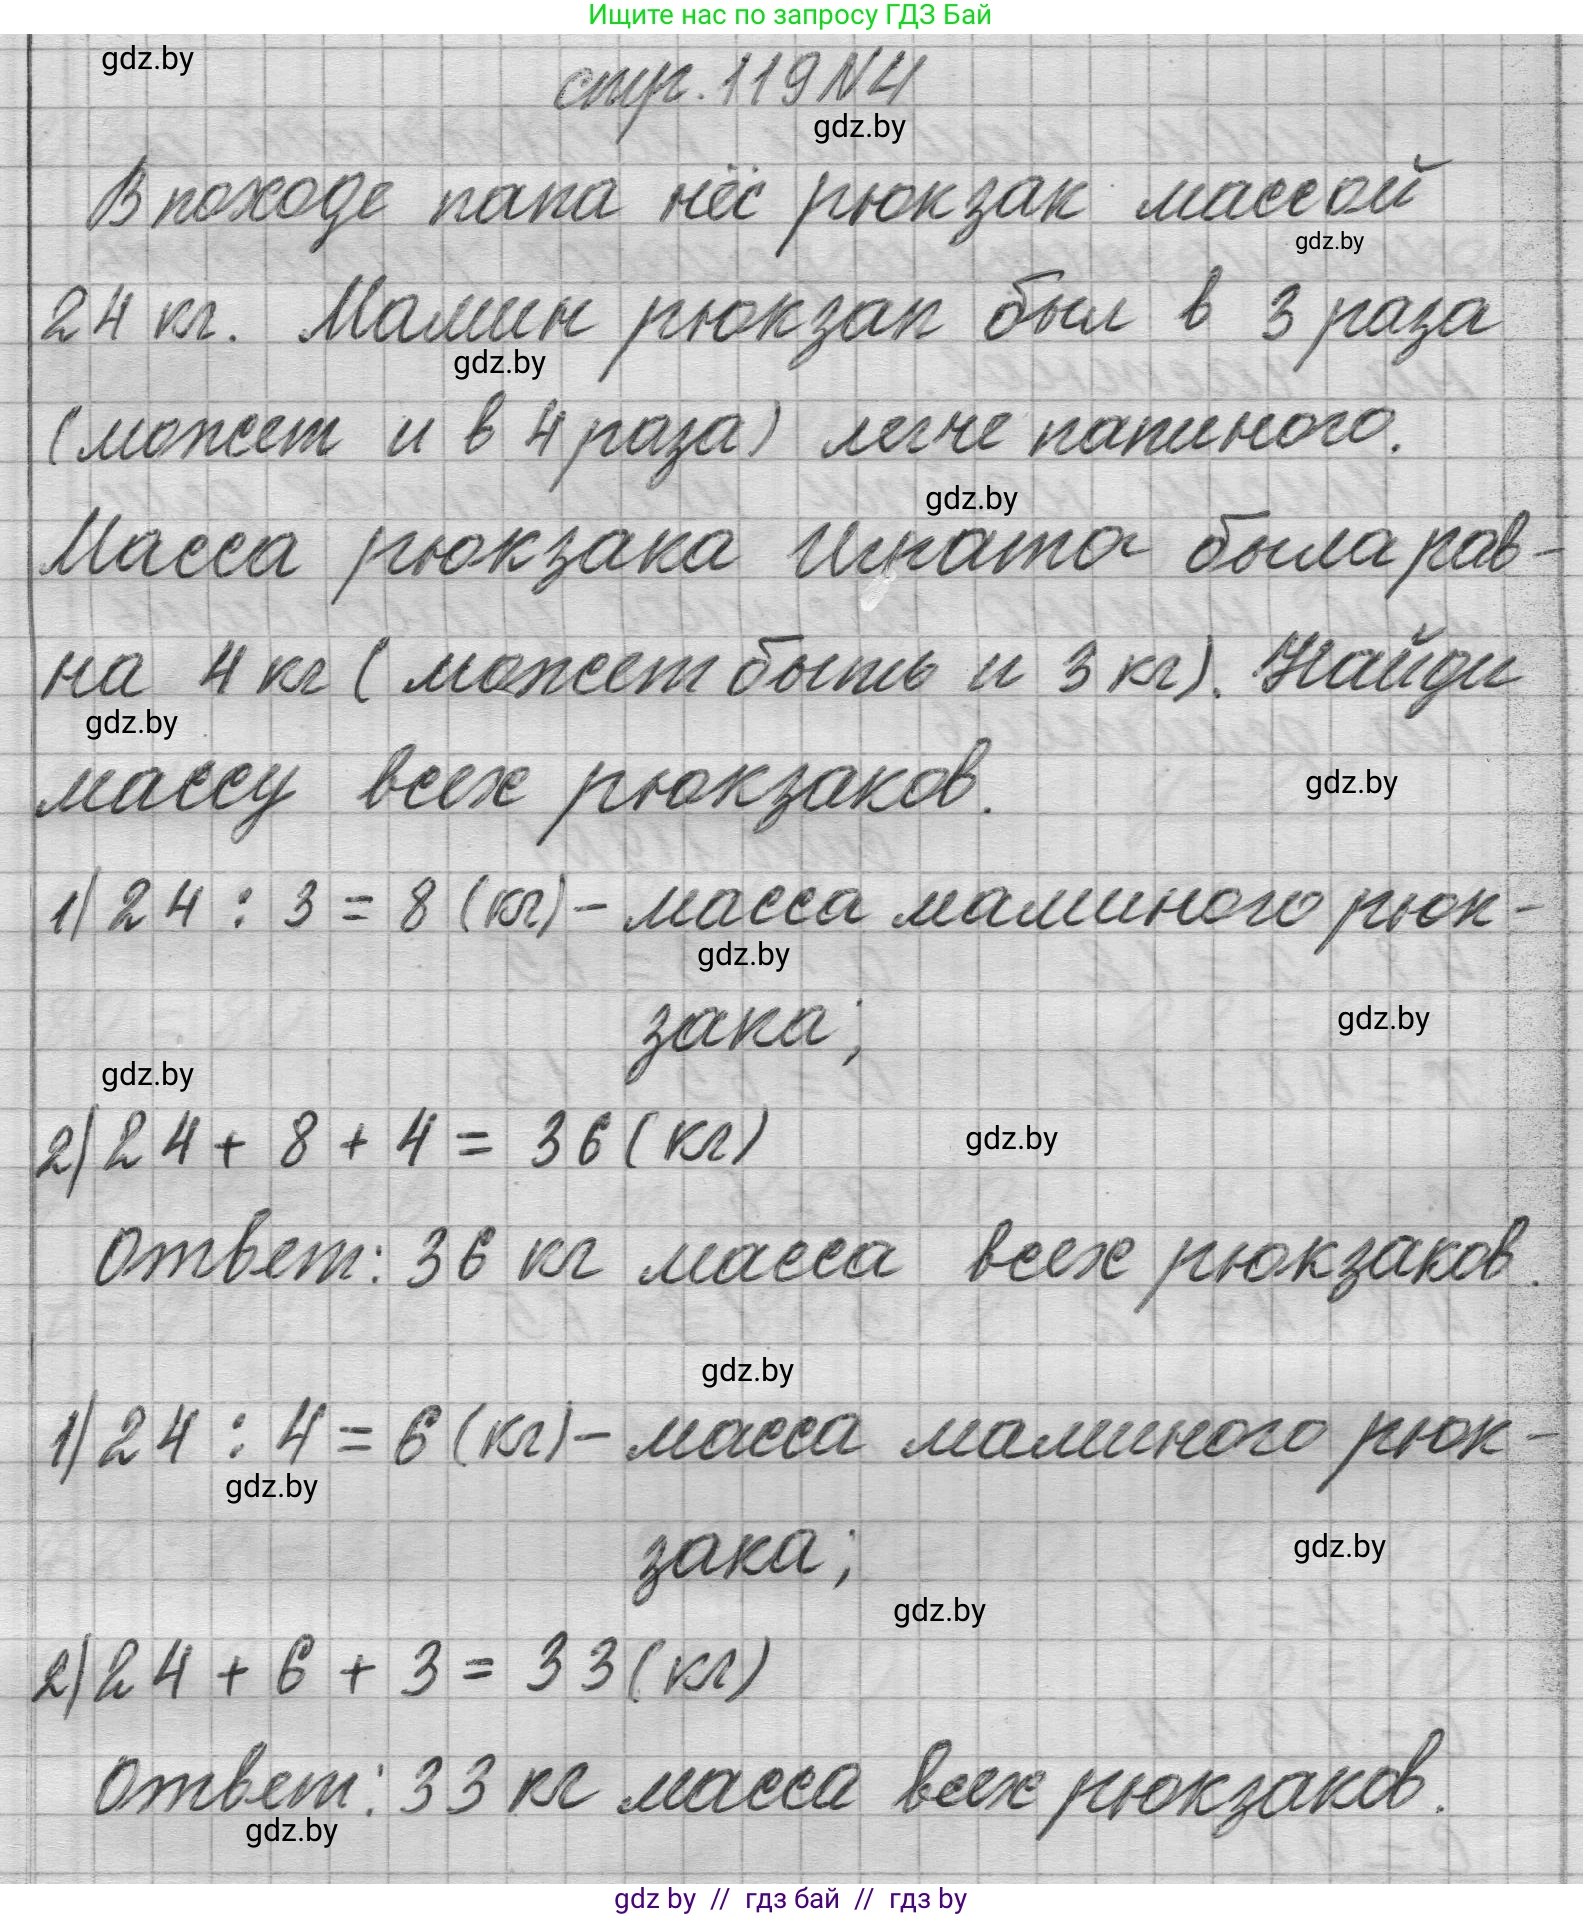 Ищите нас по запросу ГДЗ Бай
gdz.by
стр. 119 N 4
gdz.by
В походе папа нёс рюкзак массой
gdz.by
24 кг. Мамин рюкзак был в 3 раза
gdz.by
(может и в 4 раза) легче папиного.
gdz.by
Масса рюкзака Игната была рав-
на 4 кг (может быть и 3 кг). Найди
gdz.by
массу всех рюкзаков.
gdz.by
1) 24 : 3 = 8 (кг) - масса маминого рюк-
gdz.by
зака;
gdz.by
gdz.by
2) 24 + 8 + 4 = 36 (кг)
gdz.by
Ответ: 36 кг масса всех рюкзаков.
gdz.by
1) 24 : 4 = 6 (кг) - масса маминого рюк-
gdz.by
зака;
gdz.by
gdz.by
2) 24 + 6 + 3 = 33 (кг)
Ответ: 33 кг масса всех рюкзаков.
gdz.by
gdz by // гдз бай // гдз by